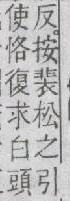 反。按裴松之引
使恪復求白頭